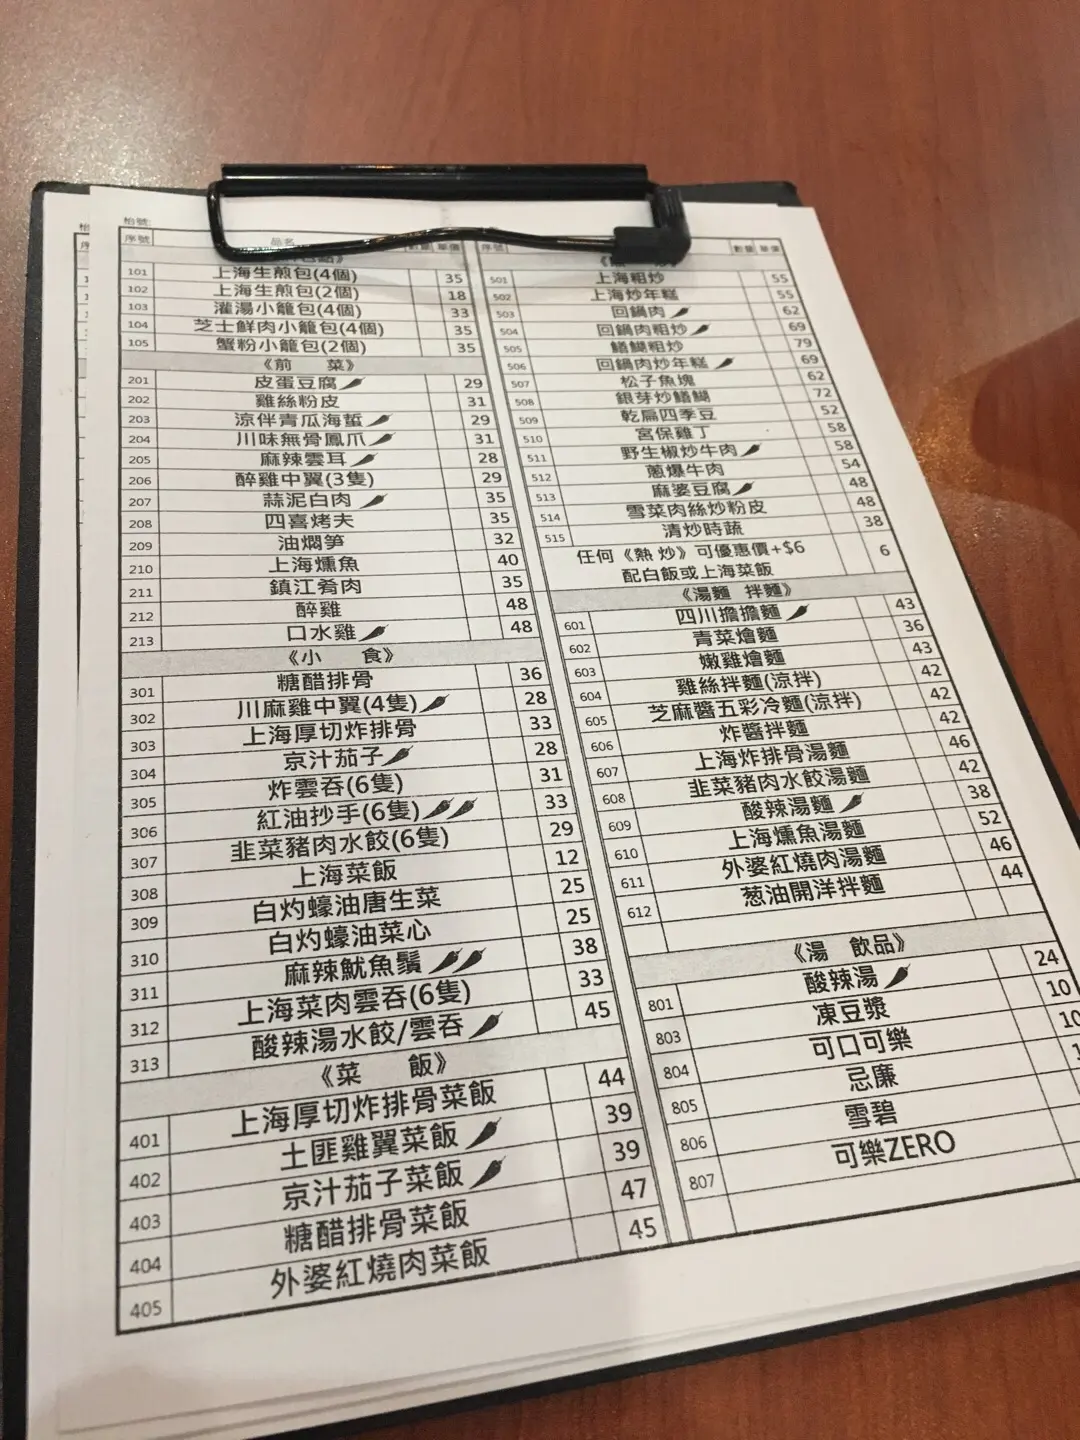 枱號:
序號 品名 數量 單價
101 上海生煎包(4個) 35
102 上海生煎包(2個) 18
103 灌湯小籠包(4個) 33
104 芝士鮮肉小籠包(4個) 35
105 蟹粉小籠包(2個) 35
《前 菜》
201 皮蛋豆腐 29
202 雞絲粉皮 31
203 涼伴青瓜海蜇 29
204 川味無骨鳳爪 31
205 麻辣雲耳 28
206 醉雞中翼(3隻) 29
207 蒜泥白肉 35
208 四喜烤夫 35
209 油燜笋 32
210 上海燻魚 40
211 鎮江肴肉 35
212 醉雞 48
213 口水雞 48
《小 食》
301 糖醋排骨 36
302 川麻雞中翼(4隻) 28
303 上海厚切炸排骨 33
304 京汁茄子 28
305 炸雲吞(6隻) 31
306 紅油抄手(6隻) 33
307 韭菜豬肉水餃(6隻) 29
308 上海菜飯 12
309 白灼蠔油唐生菜 25
310 白灼蠔油菜心 25
311 麻辣魷魚鬚 38
312 上海菜肉雲吞(6隻) 33
313 酸辣湯水餃/雲吞 45
《菜 飯》
401 上海厚切炸排骨菜飯 44
402 土匪雞翼菜飯 39
403 京汁茄子菜飯 39
404 糖醋排骨菜飯 47
405 外婆紅燒肉菜飯 45
序號 數量 單價
501 上海粗炒 55
502 上海炒年糕 55
503 回鍋肉 62
504 回鍋肉粗炒 69
505 鱔糊粗炒 79
506 回鍋肉炒年糕 69
507 松子魚塊 62
508 銀芽炒鱔糊 72
509 乾扁四季豆 52
510 宮保雞丁 58
511 野生椒炒牛肉 58
512 蔥爆牛肉 54
513 麻婆豆腐 48
514 雪菜肉絲炒粉皮 48
515 清炒時蔬 38
任何《熱 炒》可優惠價+$6 6
配白飯或上海菜飯
《湯麵 拌麵》
601 四川擔擔麵 43
602 青菜燴麵 36
603 嫩雞燴麵 43
604 雞絲拌麵(涼拌) 42
605 芝麻醬五彩冷麵(涼拌) 42
606 炸醬拌麵 42
607 上海炸排骨湯麵 46
608 韭菜豬肉水餃湯麵 42
609 酸辣湯麵 38
610 上海燻魚湯麵 52
611 外婆紅燒肉湯麵 46
612 葱油開洋拌麵 44
《湯 飲品》
801 酸辣湯 24
803 凍豆漿 10
804 可口可樂 10
805 忌廉
806 雪碧
807 可樂ZERO